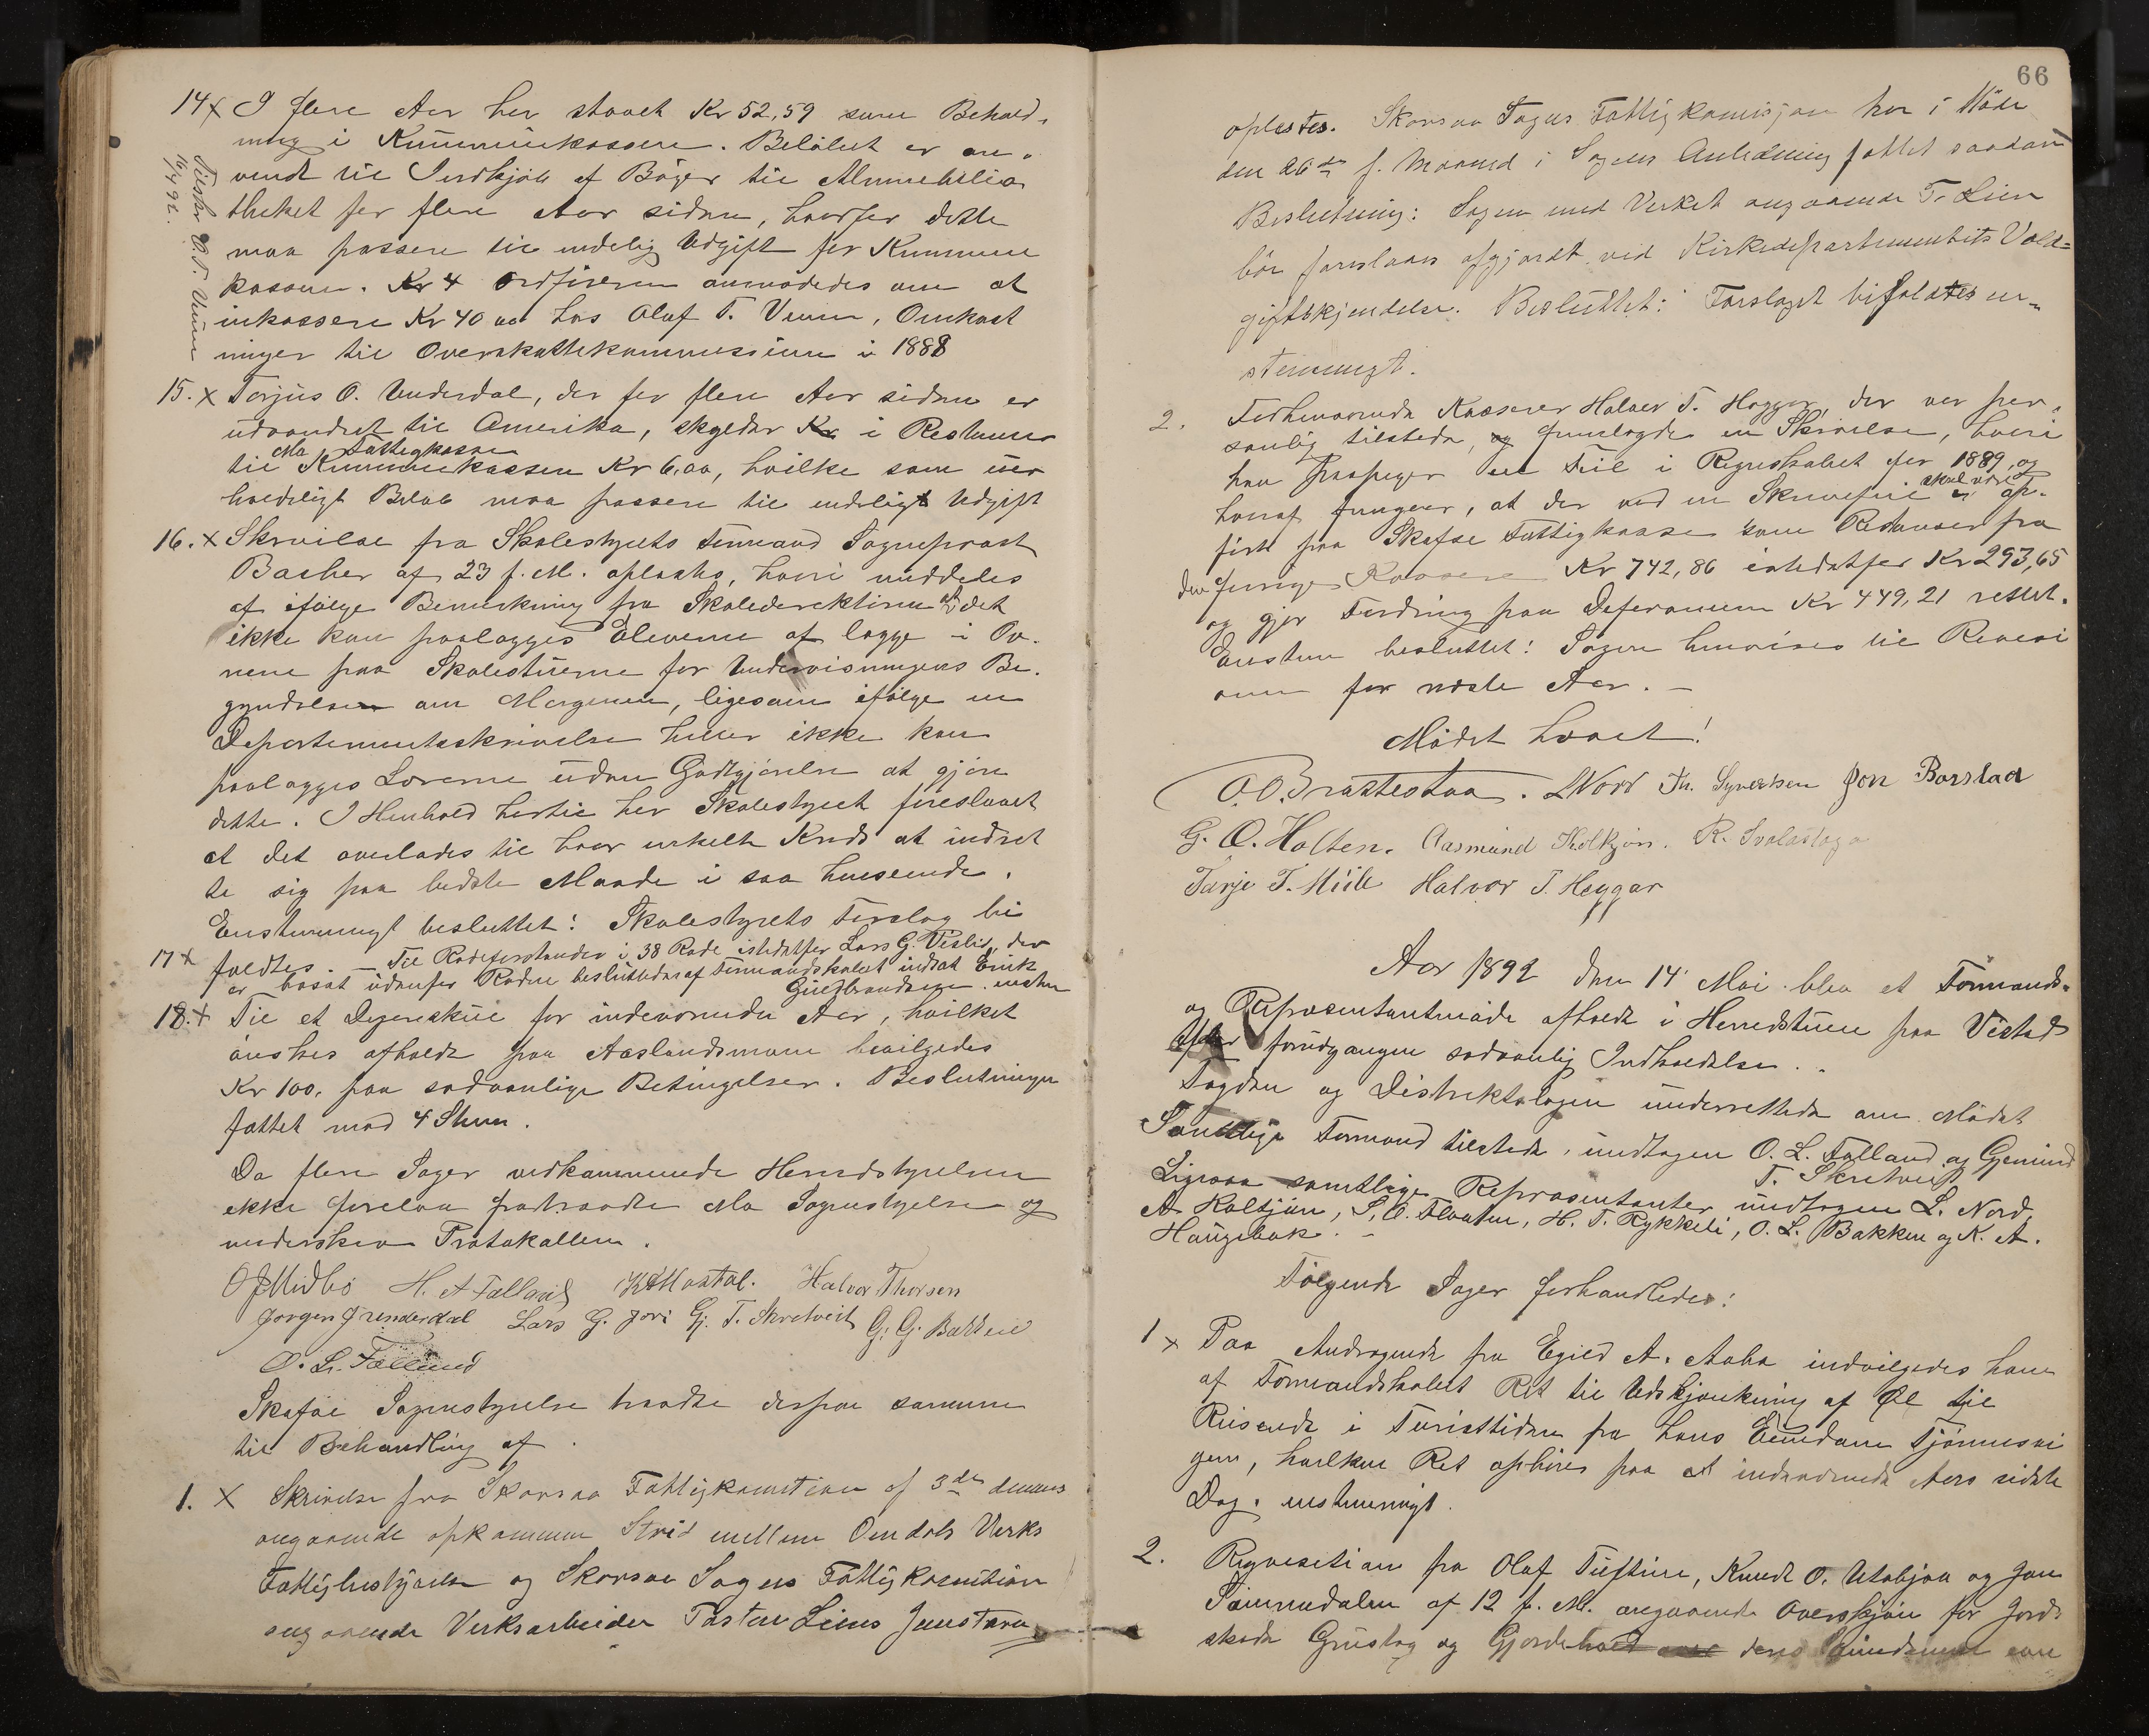 14 x I flere Aar har staaet Kr 52,59 som Behold-
ning i Kummunekassen. Beløbet er an-
vendt til Indkjøb af Bøger til Almuebiblio
theket for flere Aar siden, hvorfor dette
maa passere til endelig Udgift for Kummune
kassen. Ordføreren anmodedes om at
inkassere Kr 40 00 hos Olaf T. Vinien, Omkost
ninger til Overskattekommissionen i 1888
Tilskr O.T. Vinien
16/4 92.
15. x Torjus O. Underdal, der for flere Aar siden er
udvandret til Amerika, skylder i Restancer
Mo Fattigkasse
til Kummunekassen Kr 6,00, hvilke som uer
holdeligt Beløb maa passere til endeligt Udgift
16. x Skrivelse fra Skolestyrets Formand Sogneprest
Bacher af 23 f. M. oplæstes, hvori meddeles
at ifølge Bemerkning fra Skoledirektøren at det
ikke kan paalægges Eleverne at lægge i Ov-
nene paa Skolestuerne før Undervisningens Be-
gyndelse om Morgenen, ligesom ifølge en
Departementsskrivelse heller ikke kan
paalægges Lærerne uden Godtgjørelse at gjøre
dette. I Henhold hertil har Skolestyret foreslaaet
at det overlades til hver enkelt Kreds at indret
te sig paa bedste Maade i saa Henseende.
Enstemmigt besluttet: Skolestyrets Forslag bi
faldtes.
17 x Til Rodeforstander i 38 Rode istedetfor Lars G. Vesliø, der
er bosat udenfor Roden besluttedes af Formandskabet indsat Erik
Guldbrandsen. enstem
18. x Til et Dyreskue for indeværende Aar, hvilket
ønskes afholdt paa Aaslandsmoen bevilgedes
Kr 100, paa sædvanlige Betingelser. Beslutningen
fattet mod 4 Stem.
Da flere Sager vedkommende Herredstyrelsen
ikke forelaa fratraadte Mo Sognestyrelse og
underskrev Protokollen.
O J Midbø H. A Falland K A Mostøl. Halvor Thorsen
Jørgen Grimderdal Lars G. Jore Gj. T. Skretveit G. G. Bakken
O. L. Falland
Skafsé Sognestyrelse traadte derpaa sammen
til Behandling af
1. x Skrivelse fra Skovsaa Fattigkomission af 3die dennes
angaaende opkommen Strid mellem Omdals Verks
Fattigbestyrelse og Skovsaa Sogns Fattigkomission
angaaende Verksarbeider Tarstein Liens Forsteran
66
oplæstes. Skovsaa Sogns Fattigkomisjon har i Møde
den 26de f. Maaned i Sagens Anledning fattet saadan
Beslutning: Sagen med Verket angaaende T. Lien
bør foreslaaes afgjordt ved Kirkedepartementets Vold=
giftskjendelse. Besluttet: Forslaget bifaldtes en-
stemmigt.
2. Forhenværende Kasserer Halvor T. Heggar, der var per-
sonlig tilstede, fremlagde en Skrivelse, hvori
han paapeger en Feil i Regnskabet for 1889, og
hvoraf fremgaar, at der ved en Skrivefeil skal være op-
ført paa Skafse Fattigkasse som Restancer fra
den forrige Kasserer Kr 742,86 istedetfor Kr 293,65
og gjør Fordring paa Deferansen Kr 449,21 rettet.
Enstem besluttet: Sagen henvises til Revisi
onen for næste Aar. –
Mødet hævet!
O.O. Brattestaa. L Nord Th. Syvertsen Jon Barstad
G. O. Holten. Aasmund Holtjøn. R. Svalastoga
Tarje T. Mule Halvor T. Heggar
Aar 1892 den 14 Mai blev et Formands-
og Repræsentantmøde afholdt i Herredstuen paa Vistad
efter forudgangen sædvanlig Indkaldelse.
Fogden og Distriktslægen underrettede om Mødet
Samtlige Formænd tilstede, undtagen O. L. Falland og Gjermund
T. Skretveit
Ligesaa samtlige Repræsentanter undtagen L. Nord,
A Holtjøn, S. O. Flaaten, H. T. Rykkeli, O. L. Bakken og K. A.
Haugebak. –
Følgende Sager forhandledes:
1 x Paa Andragende fra Egild A. Aabø indvilgedes ham
af Formandskabet Ret til Udskjænkning af Øl til
Reisende i Turisttiden fra hans Eiendom Tjønnesvi
gen, hvilken Ret ophører paa indeværende Aars sidste
Dag. enstemmigt.
2. Reqvisition fra Olaf Tuftine, Knudt O. Utabjaa og Jon
Sømmdalen af 12 f. M. angaaende Overskjøn for Jord
skade Grustag og Gjordehold deres Eiendomme